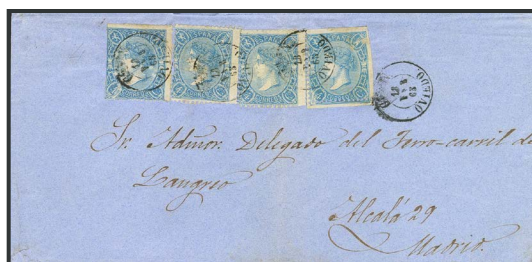 OVIEDO
Sr. Admor. Delegado del Ferro-carril de
Langreo
Alcalá 29
Madrid.